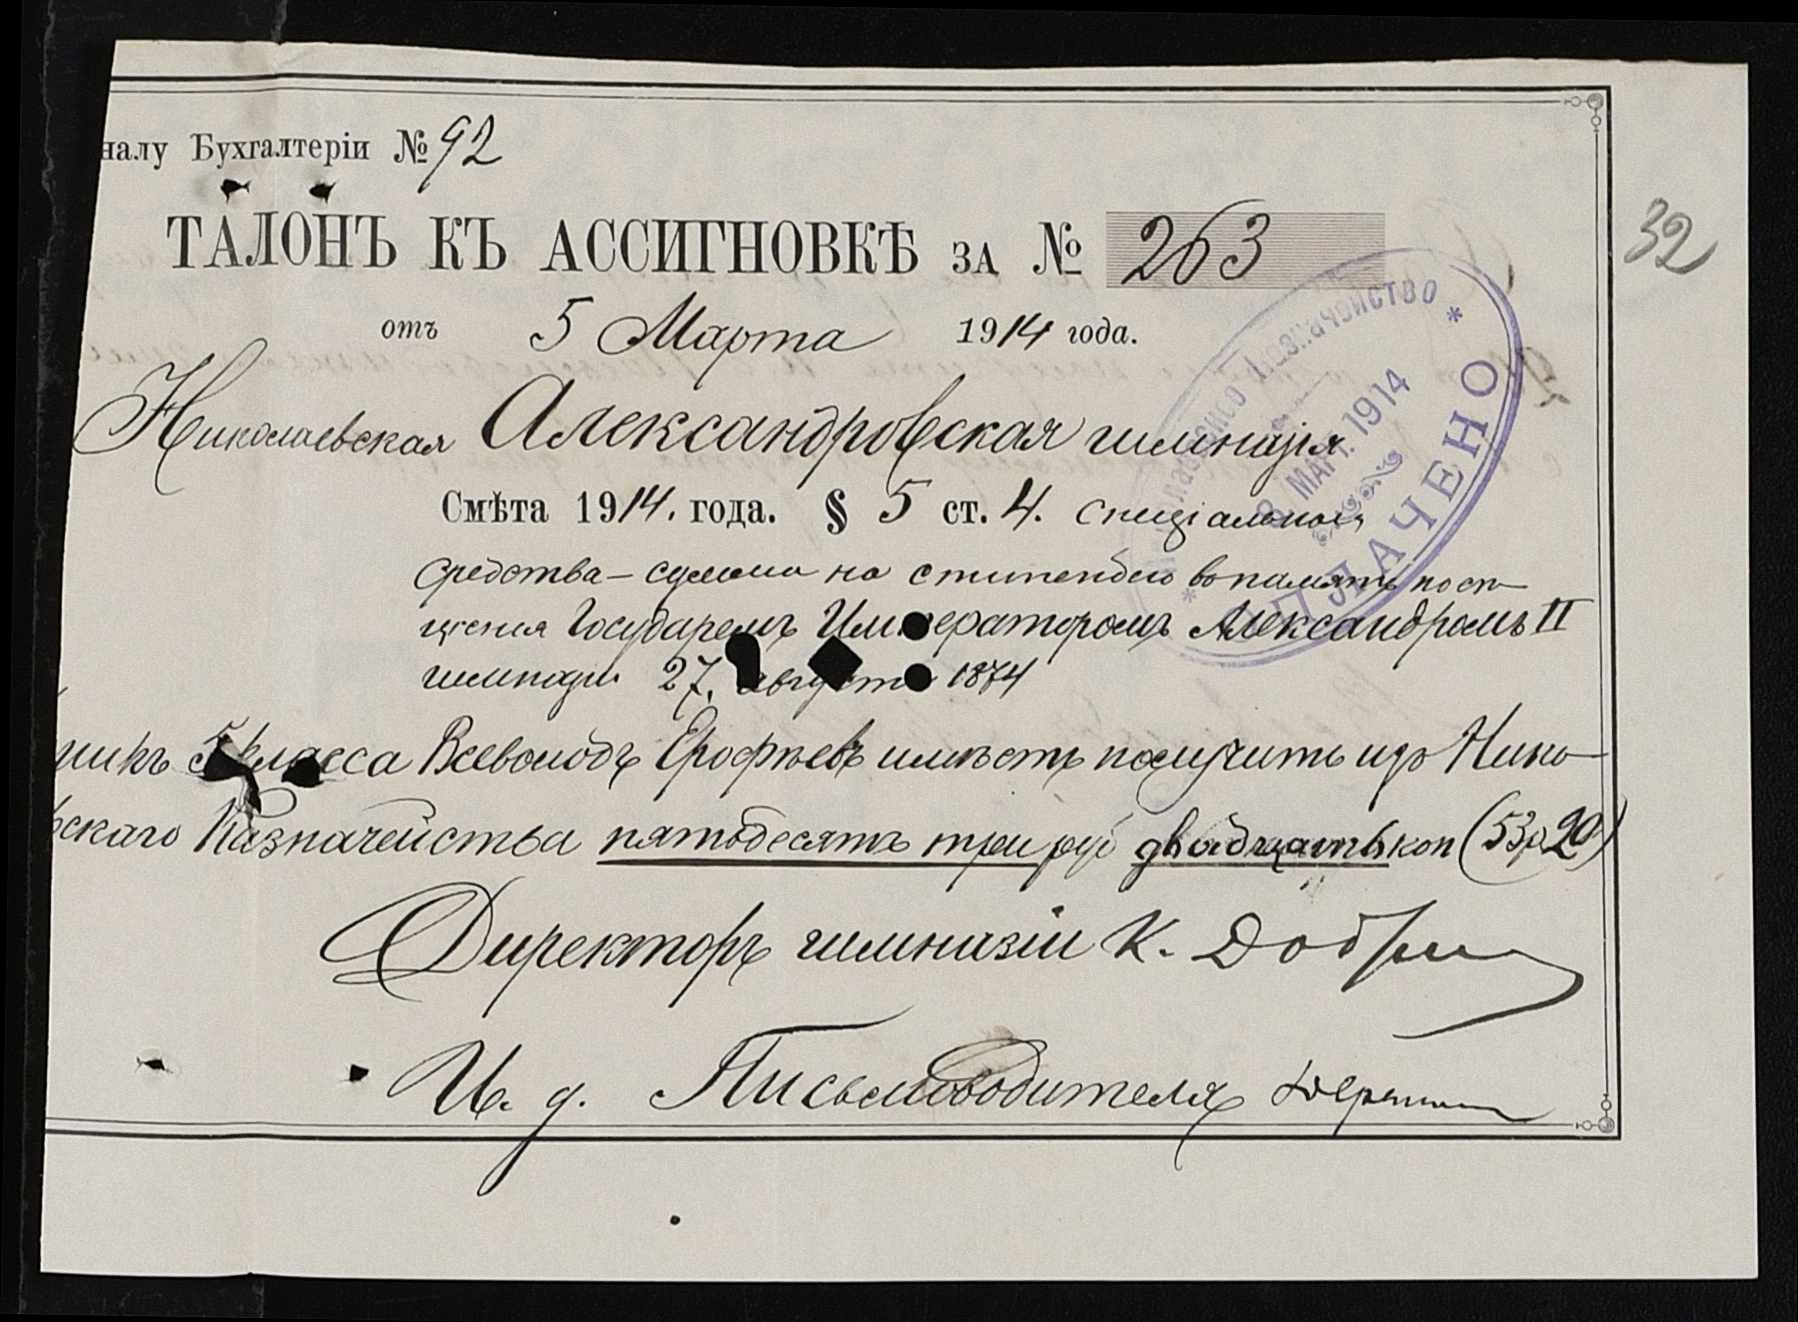 налу Бухгалтеріи № 92
ТАЛОНЪ КЪ АССИГНОВКѢ ЗА № 263
32
отъ 5 Марта 1914 года.
Николаевская Александровская гимназія
Смѣта 1914. года. § 5 ст. 4. спеціальныя
средства – суммы на стипендію въ память посѣ-
щенія Государемъ Императоромъ Александромъ II
гимназіи 27. августа 1874
никъ 5 класса Всеволодъ Ерофѣевъ имѣетъ получить изъ Нико-
скаго Казначейства пятьдесятъ три руб двадцать коп (53 р 20)
Директоръ гимназіи К. Доб
И. д. Письмоводителя
Казначейство
8 МАР. 1914
ОПЛАЧЕНО